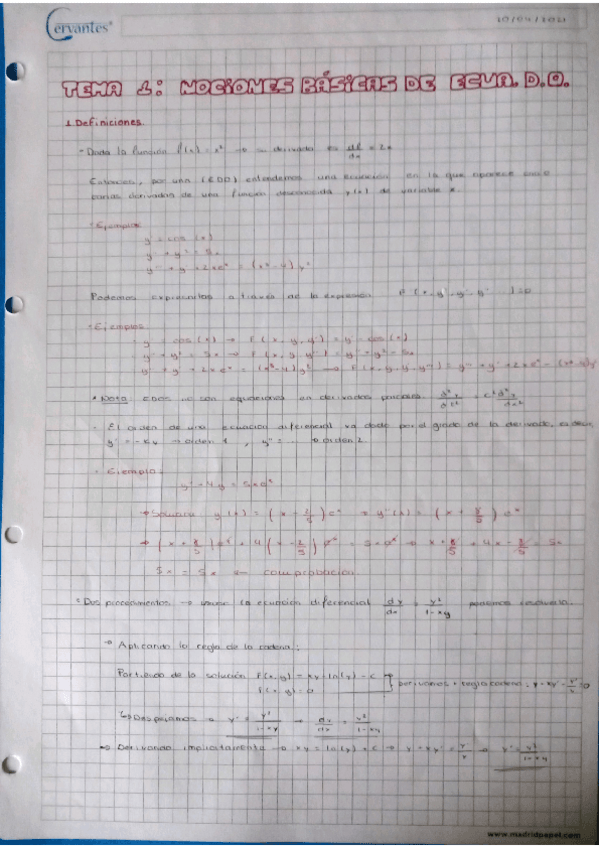 Cervantes
20/04/2021
TEMA 1: NOCIONES BÁSICAS DE ECUA. D.O.
1. Definiciones.
- Dada la función f(x) = x² → su derivada es df/dx = 2x
Entonces, por una (EDO) entendemos una ecuación en la que aparece una o
varias derivadas de una función desconocida y(x) de variable x.
- Ejemplos
y' = cos(x)
y'' + y² = 5x
y''' + y' + 2xeˣ = (x² - 4) y²
Podemos expresarlos a través de la expresión F(x, y, y', y'' ) = 0
- Ejemplos
y' = cos(x) → F(x, y, y') = y' - cos(x)
y'' + y² = 5x → F(x, y, y'') = y'' + y² - 5x
y''' + y' + 2xeˣ = (x² - 4) y² → F(x, y, y', y''') = y''' + y' + 2xeˣ - (x² - 4) y²
* Nota: EDOs no son equaciones en derivadas parciales
- El orden de una ecuación diferencial va dado por el grado de la derivada, es decir,
y' = -ky → orden 1, y'' = ... → orden 2.
- Ejemplo:
y' + 4y = 5xeˣ
→ y(x) = (x - 1/5) eˣ → y'(x) = (x + 4/5) eˣ
→ (x + 4/5) eˣ + 4 (x - 1/5) eˣ = 5xeˣ → x + 4/5 + 4x - 4/5 = 5x
5x = 5x ← comprobación
* Dos procedimientos → la ecuación diferencial dy/dx = y²/1-xy podemos resolverla.
→ Aplicando la regla de la cadena:
Partiendo de la solución F(x, y) = xy - ln(y) = c
F(x, y) = 0
derivamos + regla cadena: y + xy' - y'/y = 0
↳ Despejamos → y' = y²/1-xy → dy/dx = y²/1-xy
→ Derivando implícitamente → xy = ln(y) + c → y + xy' = y'/y → y' = y²/1-xy
www.madridpapel.com